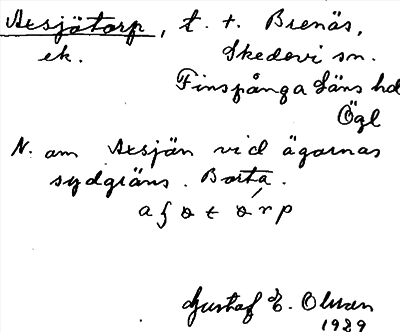 Axsjötorp, t. t. Brenäs,
ek. Skedevi sn.
Finspånga läns hd
Ögl
N. om Axsjön vid ägornas
sydgräns. Borta.
Gustaf E. Olsson
1929